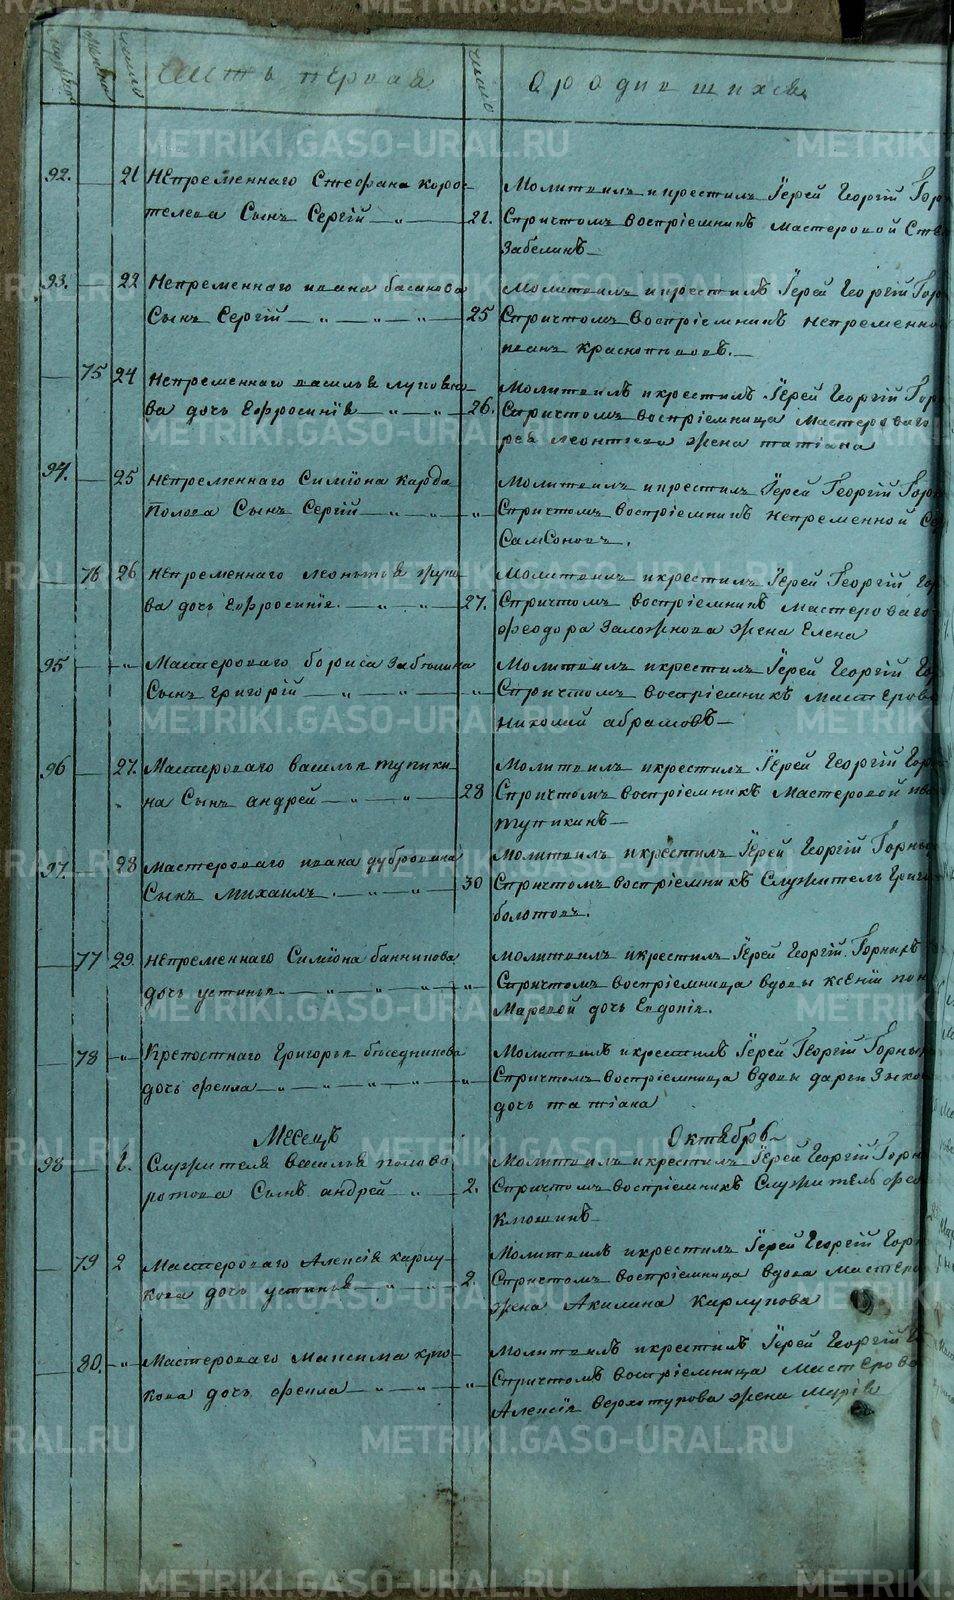 Часть первая
о родившихся
число
число
92. 21 Непременнаго Стефана Коро-
телева Сынъ Сергій 21.
Молитвилъ и крестилъ Іерей Георгій Гор
Спричтомъ воспріемникъ Мастеровой
Забелинъ
93. 22 Непременнаго ивана басанова
Сынъ Сергій 25
Молитвилъ и крестилъ Іерей Георгій Гор
Спричтомъ воспріемникъ непременно
иванъ
75 24 Непременнаго василья
ва дочь Ефросинія 26.
Молитвилъ и крестилъ Іерей Георгій Гор
Спричтомъ воспріемница Мастероваго
рея леонтьева жена татіана
94. 25 Непременнаго Симіона Карба
полова Сынъ Сергій „
Молитвилъ и крестилъ Іерей Георгій Горн
Спричтомъ воспріемникъ непременной
Самсоновъ.
76 26 Непременнаго леонтья
ва дочь Ефросинія. 27.
Молитвилъ и крестилъ Іерей Георгій Гор
Спричтомъ воспріемникъ Мастероваго
феодора жена Елена
95 „ Мастероваго бориса
Сынъ григорій „
Молитвилъ и крестилъ Іерей Георгій Гор
Спричтомъ воспріемникъ мастерово
николай абрамовъ
96 27. Мастероваго василья тупики-
на Сынъ андрей 28
Молитвилъ и крестилъ Іерей Георгій Гор
Спричтомъ воспріемникъ Мастеровой ива
тупикинъ
97. 28 Мастероваго ивана дубровина
Сынъ Михаилъ. 30
Молитвилъ и крестилъ Іерей Георгій Горны
Спричтомъ воспріемникъ Служитель григо
болотовъ.
77 29. непременнаго Симіона банникова
дочь устинья „
молитвилъ и крестилъ Іерей Георгій Горныхъ
Спричтомъ воспріемница вдовы ксеніи пон
маревой дочь Евдокія.
78 „ Крепостнаго Григорья беседникова
дочь фекла „
Молитвилъ и крестилъ Іерей Георгій Горных
Спричтомъ воспріемница вдовы дарьи Зыков
дочь татіана
Месецъ Октябрь
98 1. Служителя василья поново
ротова Сынъ андрей 2.
Молитвилъ и крестилъ Іерей Георгій Горн
Спричтомъ воспріемникъ Служитель фео
Клюшинъ
79 2 Мастероваго Алексія карлу-
кова дочь устинья 2.
Молитвилъ и крестилъ Іерей Георгій Горн
Спричтомъ воспріемница вдова мастеро
жена Акилина Карлукова
80. „ Мастероваго Максима крю-
кова дочь фекла „
Молитвилъ и крестилъ Іерей Георгій Го
Спричтомъ воспріемница Мастерово
Алексія верхотурова жена Марія
METRIKI.GASO-URAL.RU